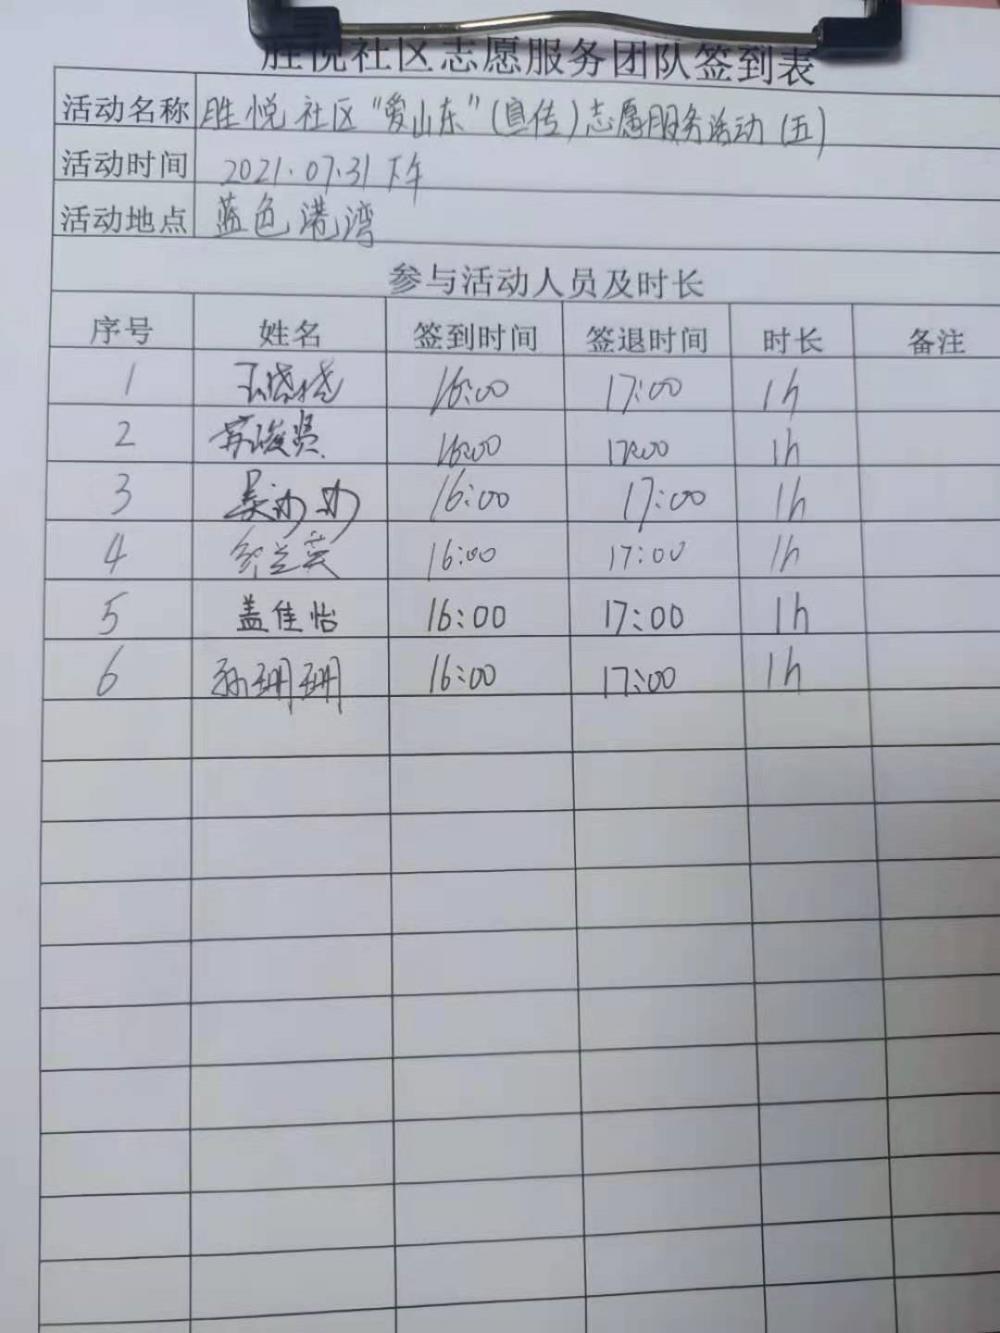 胜悦社区志愿服务团队签到表
活动名称 胜悦社区“爱山东”(宣传)志愿服务活动(五)
活动时间 2021.07.31下午
活动地点 蓝色港湾
参与活动人员及时长
序号 姓名 签到时间 签退时间 时长 备注
1 王晓晓 16:00 17:00 1h
2 苏海贤 16:00 17:00 1h
3 16:00 17:00 1h
4 兰英 16:00 17:00 1h
5 盖佳怡 16:00 17:00 1h
6 孙珊珊 16:00 17:00 1h